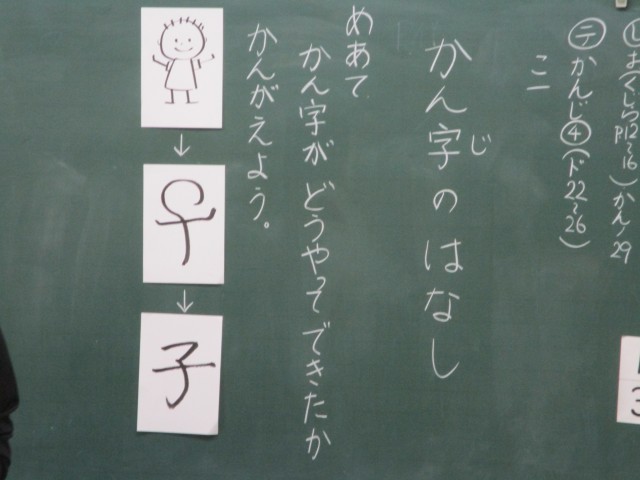 し お(くじらP12~16)かん♪29
テ かんじ④(ド22~26)
こ一
かん字のはなし
じ
めあて
かん字がどうやってできたか
かんがえよう。
子